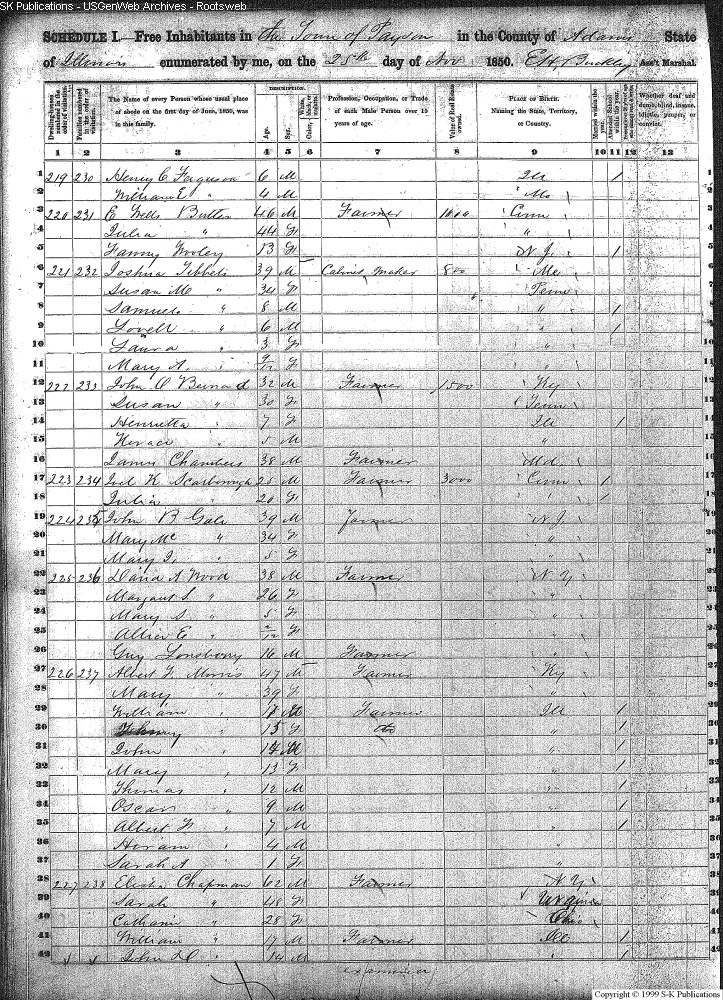 SK Publications - USGenWeb Archives - Rootsweb
SCHEDULE I.—Free Inhabitants in the Town of Payson in the County of Adams State
of Illinois enumerated by me, on the 25th day of Nov 1850. Ass't Marshal.
DESCRIPTION.
Dwelling-houses numbered in the order of visitation. Families numbered in the order of visitation. The Name of every Person whose usual place of abode on the first day of June, 1850, was in this family. Age. Sex. Profession, Occupation, or Trade of each Male Person over 15 years of age. Value of Real Estate owned. PLACE OF BIRTH. Naming the State, Territory, or Country. Married within the year. Attended School within the year. Whether deaf and dumb, blind, insane, idiotic, pauper, or convict.
1 2 3 4 5 6 7 8 9 10 11 12 13
1 219 230 Henry C Ferguson 6 M Ill / 1
2 William E " 4 M Mo 2
3 220 231 E Wells Butler 46 M Farmer 1000 Conn 3
4 Julia " 44 F " 4
5 Fanny Wooley 13 F N.J. / 5
6 221 232 Joshua Tibbets 39 M Cabinet Maker 800 Me 6
7 Susan M " 34 F Tenn 7
8 Samuel " 8 M " / 8
9 Lovell " 6 M " / 9
10 Laura " 3 F " 10
11 Mary A. " 9/12 F " 11
12 222 233 John O Bernard 32 M Farmer 1500 Ky 12
13 Susan " 30 F Tenn 13
14 Henrietta " 7 F Ill / 14
15 Horace " 5 M " 15
16 James Chambers 38 M Farmer Md. 16
17 223 234 Joel K Scarborough 25 M Farmer 3000 Conn / 17
18 Julia " 20 F " / 18
19 224 235 John B Gale 39 M Farmer N.J. 19
20 Mary Mc " 34 F " 20
21 Mary J. " 5 F " 21
22 225 236 David A Wood 38 M Farmer N.Y. 22
23 Margaret S " 26 F " 23
24 Mary S " 5 F " 24
25 E " 2/12 F " 25
26 Guy Lonsberry 16 M Farmer " 26
27 226 237 Albert F Morris 47 M Farmer Ky 27
28 Mary " 39 F " 28
29 William " M Farmer Ill / 29
30 " 15 F " / 30
31 John " 14 M " / 31
32 Mary " 13 F " / 32
33 Thomas " 12 M " / 33
34 Oscar " 9 M " / 34
35 Albert F " 7 M " / 35
36 Hiram " 4 M " 36
37 Sarah A " 1 F " 37
38 227 238 Elisha Chapman 62 M Farmer N.Y. 38
39 Sarah " 48 F Virginia 39
40 Catharine " 28 F Ohio 40
41 William " 17 M Farmer Ill / 41
42 John " 14 M " / 42
Copyright © 1999 S-K Publications